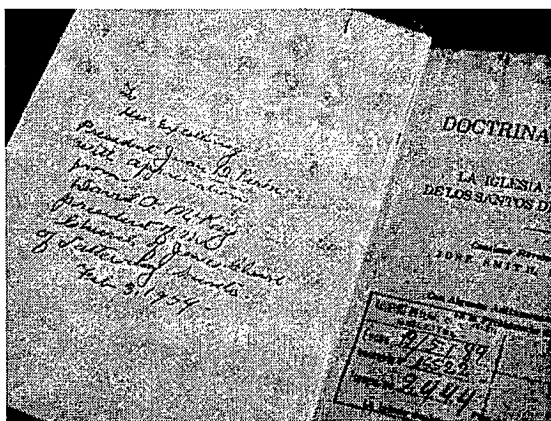 To
His Excellency
President Juan D. Peron
with appreciation
from
David O. McKay
president of the
Church of Jesus Christ
of Latter-day Saints
Feb. 3, 1954
DOCTRINA
LA IGLESIA
DE LOS SANTOS D
JOSE SMITH,
16522
2444